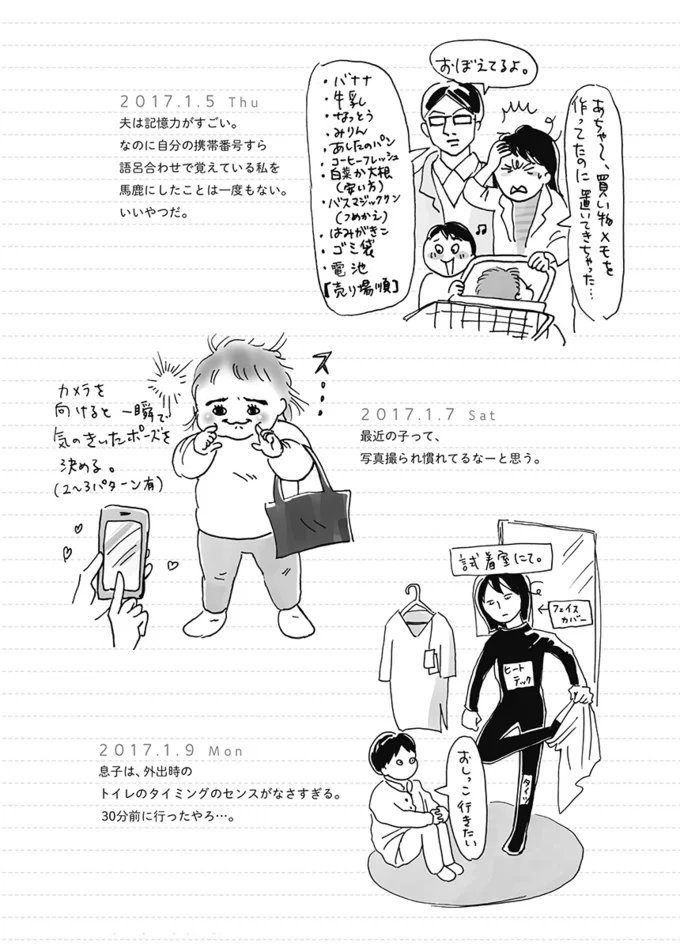 2017.1.5 Thu
夫は記憶力がすごい。
なのに自分の携帯番号すら
語呂合わせで覚えている私を
馬鹿にしたことは一度もない。
いいやつだ。
おぼえてるよ。
・バナナ
・牛乳
・なっとう
・みりん
・あしたのパン
・コーヒーフレッシュ
・白菜か大根
(安い方)
・バスマジックリン
(つめかえ)
・はみがきこ
・ゴミ袋
・電池
【売り場順】
あちゃ〜、買い物メモを
作ってたのに
置いてきちゃった…
カメラを
向けると一瞬で
気のきいたポーズを
決める。
(2〜3パターン有)
ス…
2017.1.7 Sat
最近の子って、
写真撮られ慣れてるなーと思う。
試着室にて。
フェイス
カバー
ヒート
テック
タイツ
おしっこ行きたい
2017.1.9 Mon
息子は、外出時の
トイレのタイミングのセンスがなさすぎる。
30分前に行ったやろ…。